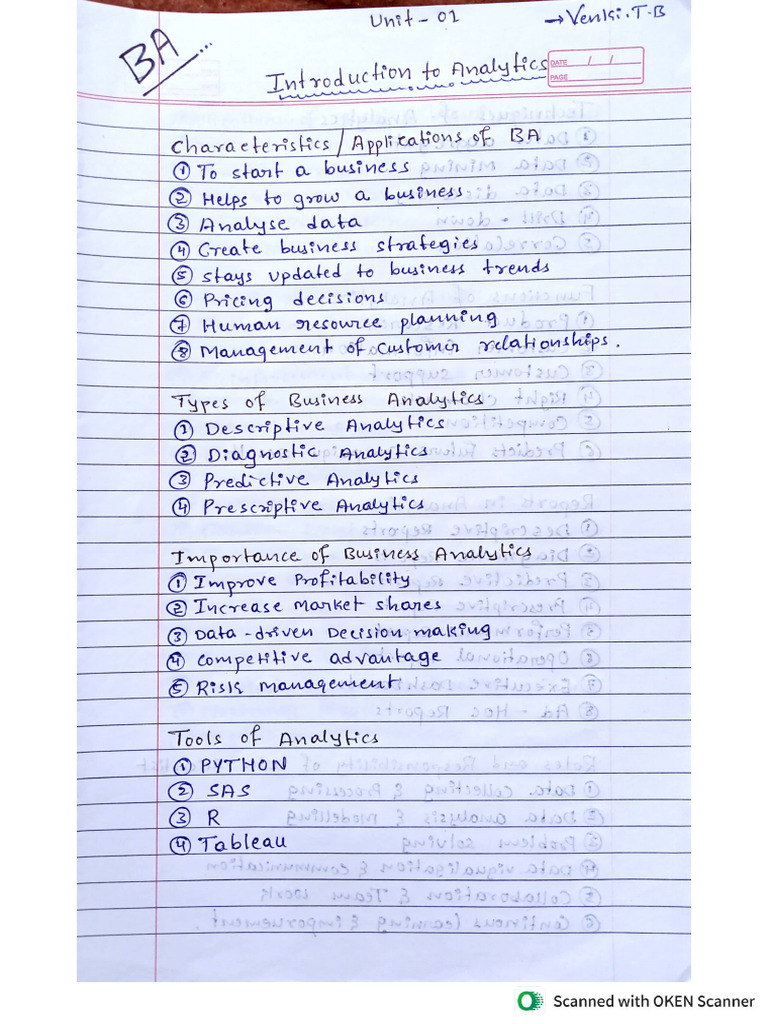 Unit - 01
→ Venki.T.B
BA...
Introduction to Analytics
DATE / /
PAGE
Characteristics / Applications of BA
① To start a business
② Helps to grow a business
③ Analyse data
④ Create business strategies
⑤ Stays updated to business trends
⑥ Pricing decisions
⑦ Human resource planning
⑧ Management of Customer relationships.
Types of Business Analytics
① Descriptive Analytics
② Diagnostic Analytics
③ Predictive Analytics
④ Prescriptive Analytics
Importance of Business Analytics
① Improve Profitability
② Increase Market shares
③ Data-driven Decision making
④ Competitive advantage
⑤ Risk management
Tools of Analytics
① PYTHON
② SAS
③ R
④ Tableau
Scanned with OKEN Scanner